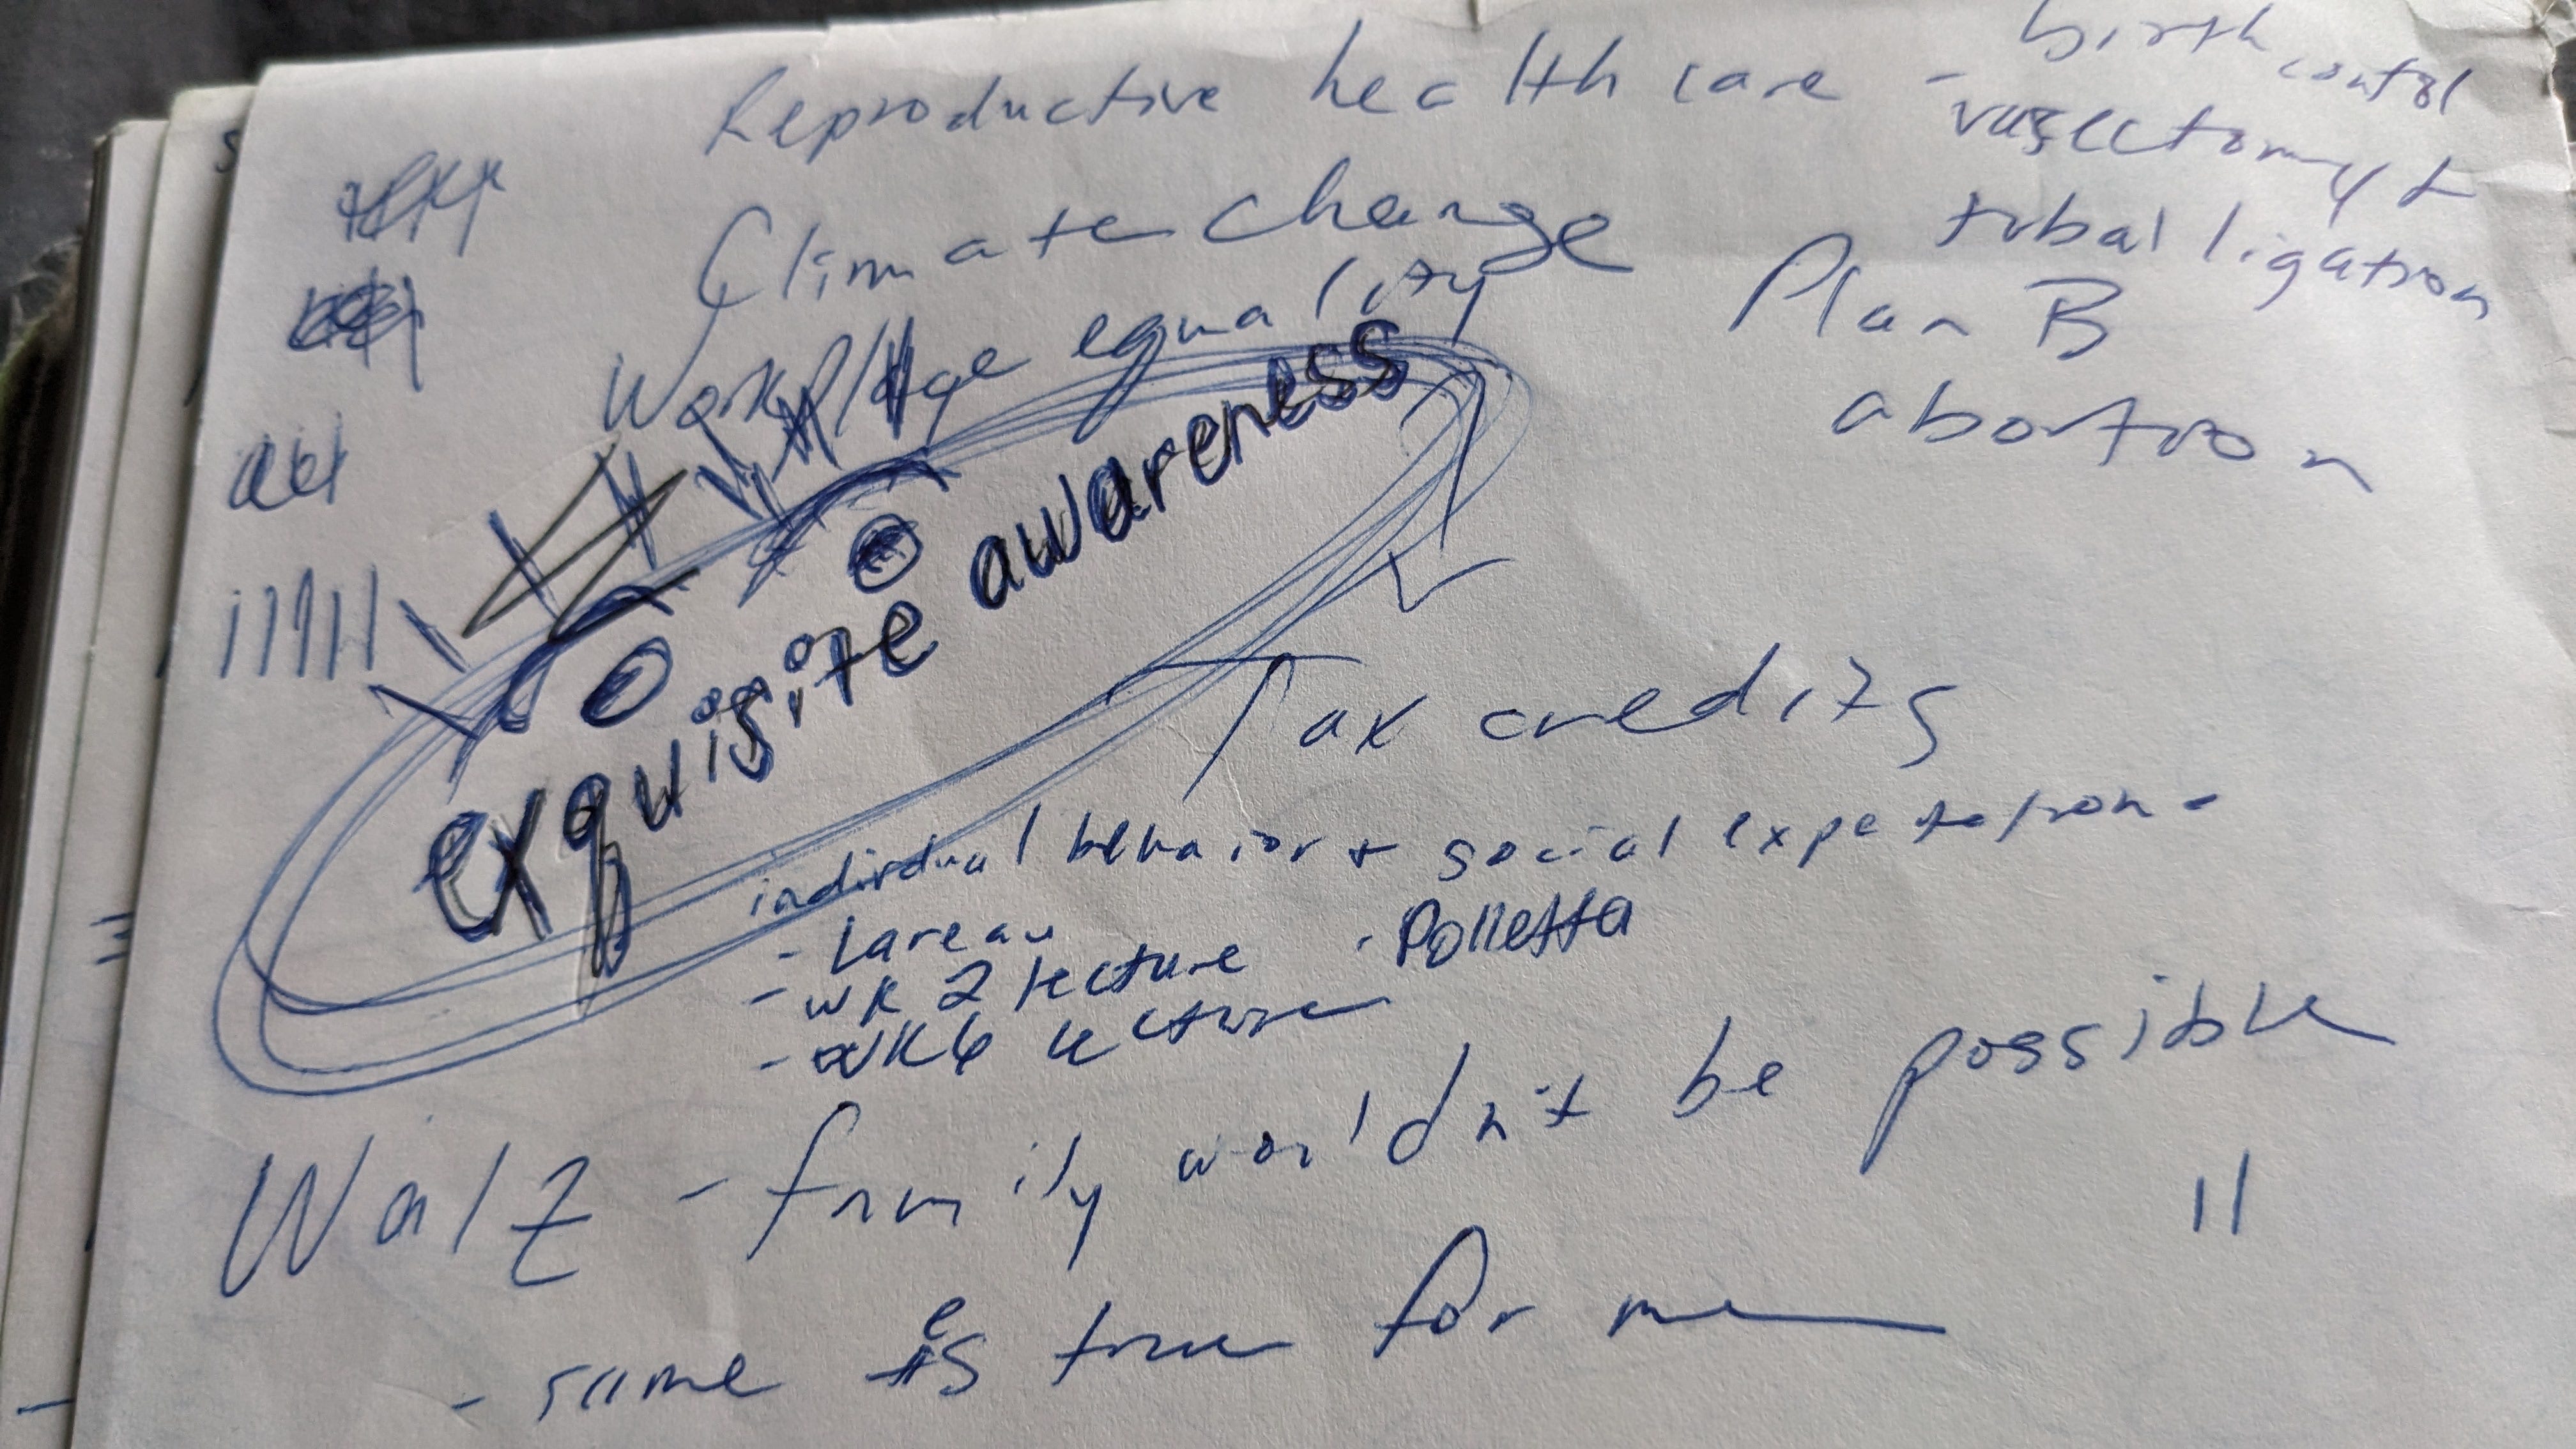 Reproductive health care - birth control
vasectomy &
tubal ligation
Climate change
Plan B
Workplace equality
abortion
exquisite awareness
Tax credits
individual behavior + social expectation -
- Lareau
- Polletta
- WK 2 lecture
- WK6 lecture
Walz - family wouldn't be possible
- same is true for me